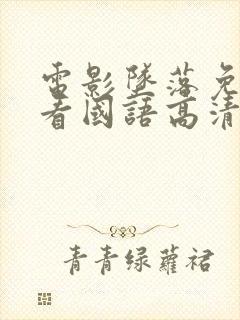 電影墜落免
看國語高清
青青绿蘿裙